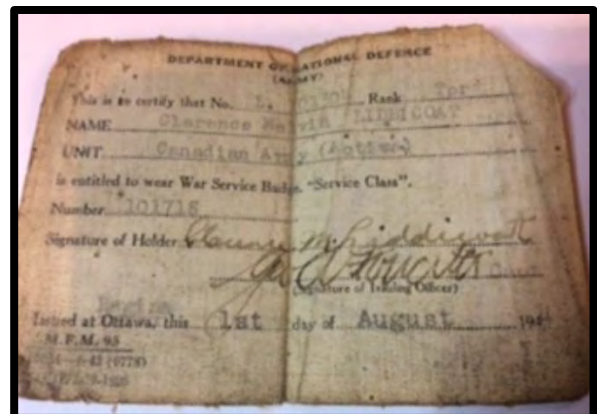 DEPARTMENT OF NATIONAL DEFENCE
(ARMY)
This is to certify that No. L. Rank Tpr
NAME Clarence Melvin LIDDICOAT
UNIT Canadian Army (Active)
is entitled to wear War Service Badge, "Service Class".
Number 101716
Signature of Holder Clarence M. Liddicoat
(Signature of Issuing Officer)
Issued at Ottawa, this 1st day of August 194
M.F.M. 95